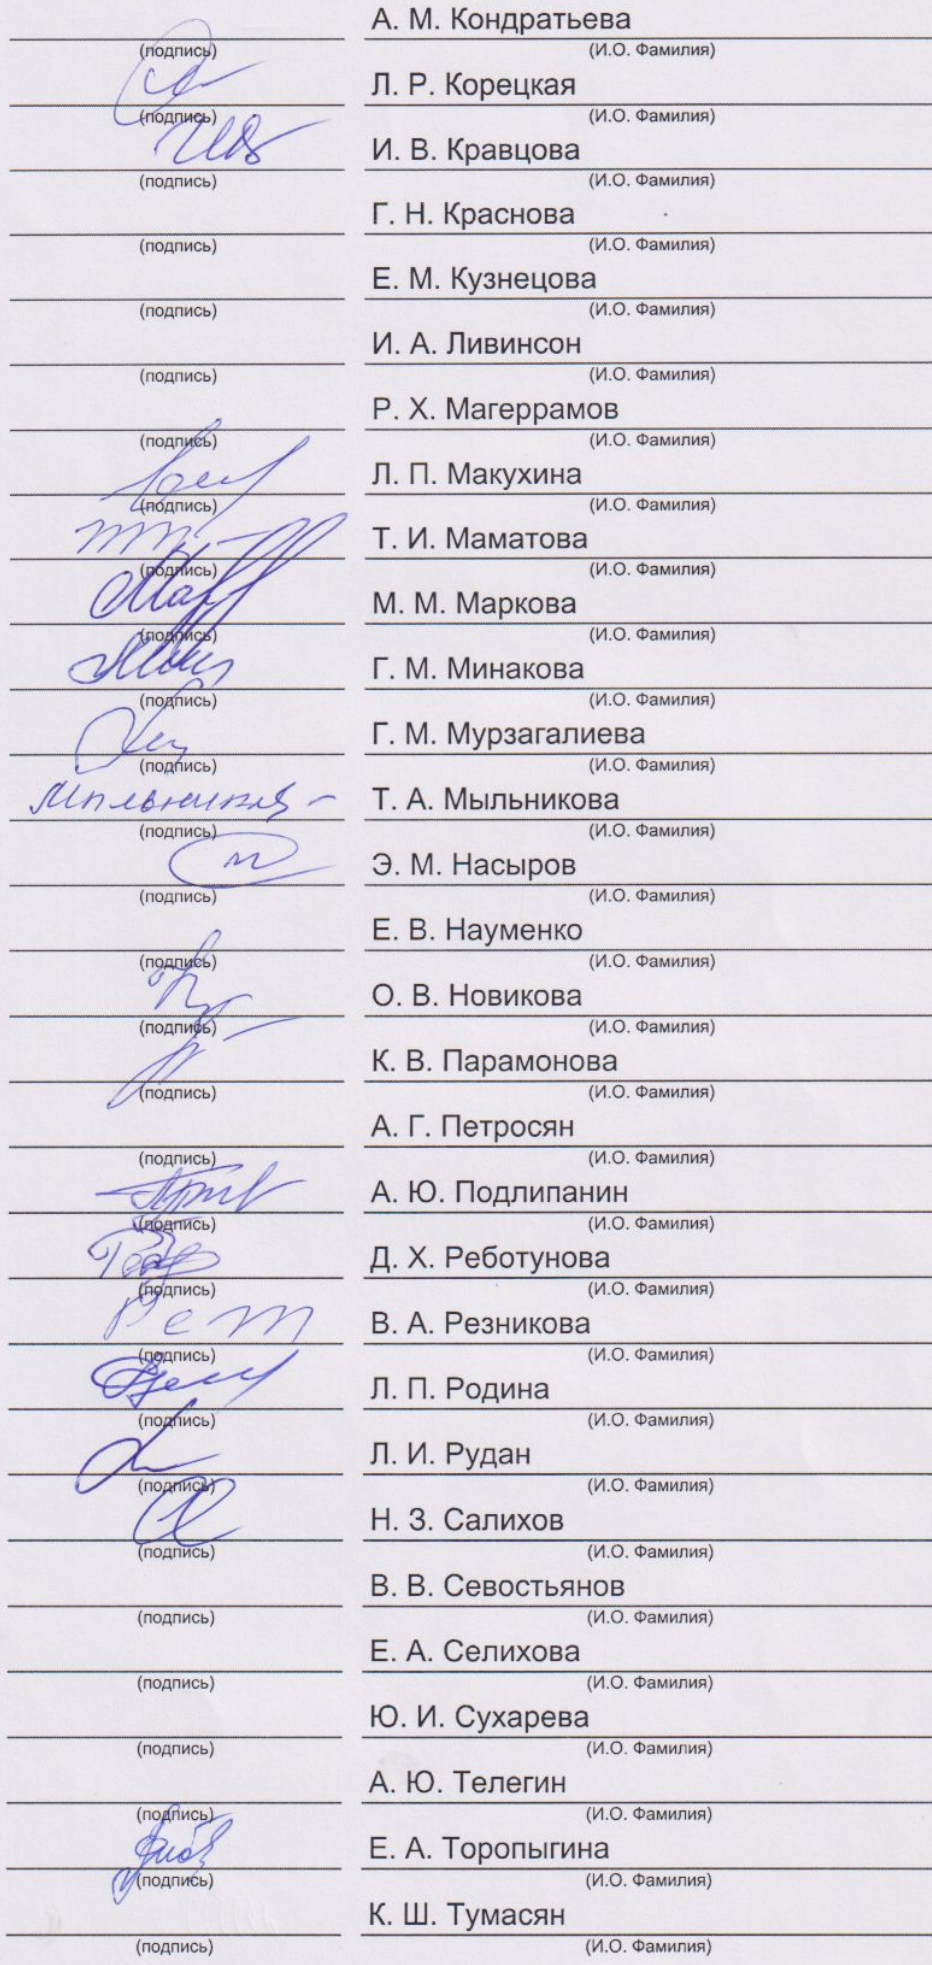 А. М. Кондратьева
(подпись) (И.О. Фамилия)
Л. Р. Корецкая
(подпись) (И.О. Фамилия)
И. В. Кравцова
(подпись) (И.О. Фамилия)
Г. Н. Краснова
(подпись) (И.О. Фамилия)
Е. М. Кузнецова
(подпись) (И.О. Фамилия)
И. А. Ливинсон
(подпись) (И.О. Фамилия)
Р. Х. Магеррамов
(подпись) (И.О. Фамилия)
Л. П. Макухина
(подпись) (И.О. Фамилия)
Т. И. Маматова
(подпись) (И.О. Фамилия)
М. М. Маркова
(подпись) (И.О. Фамилия)
Г. М. Минакова
(подпись) (И.О. Фамилия)
Г. М. Мурзагалиева
(подпись) (И.О. Фамилия)
Т. А. Мыльникова
(подпись) (И.О. Фамилия)
Э. М. Насыров
(подпись) (И.О. Фамилия)
Е. В. Науменко
(подпись) (И.О. Фамилия)
О. В. Новикова
(подпись) (И.О. Фамилия)
К. В. Парамонова
(подпись) (И.О. Фамилия)
А. Г. Петросян
(подпись) (И.О. Фамилия)
А. Ю. Подлипанин
(подпись) (И.О. Фамилия)
Д. Х. Реботунова
(подпись) (И.О. Фамилия)
В. А. Резникова
(подпись) (И.О. Фамилия)
Л. П. Родина
(подпись) (И.О. Фамилия)
Л. И. Рудан
(подпись) (И.О. Фамилия)
Н. З. Салихов
(подпись) (И.О. Фамилия)
В. В. Севостьянов
(подпись) (И.О. Фамилия)
Е. А. Селихова
(подпись) (И.О. Фамилия)
Ю. И. Сухарева
(подпись) (И.О. Фамилия)
А. Ю. Телегин
(подпись) (И.О. Фамилия)
Е. А. Торопыгина
(подпись) (И.О. Фамилия)
К. Ш. Тумасян
(подпись) (И.О. Фамилия)